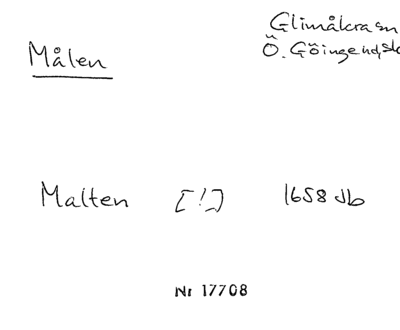 Glimåkra sn
Målen
Ö. Göinge hd,
Malten [!] 1658 Jb
Nr 17708